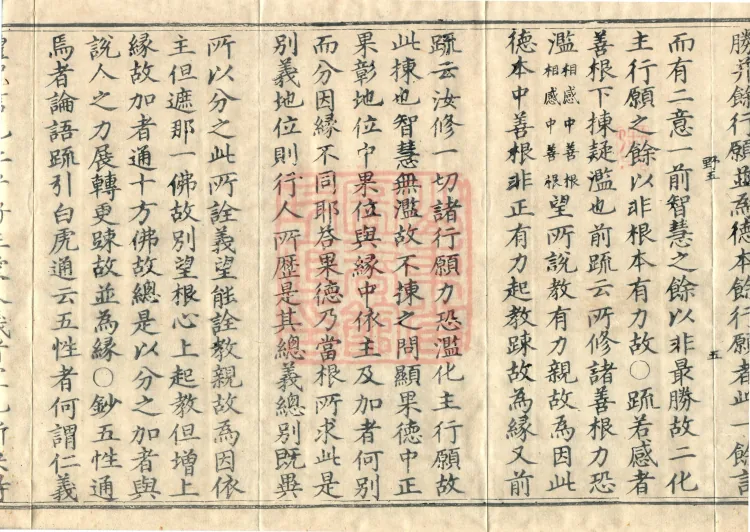 勝兼餘行願並為德本餘行願者此一餘言
而有二意一前智慧之餘以非最勝故二化
主行願之餘以非根本有力故○疏若感者
善根下揀疑濫也前疏云所修諸善根力恐
濫相感中善根望所說教有力親故為因此
相感中善根
德本中善根非正有力起教踈故為緣又前
野五
五
疏云汝修一切諸行願力恐濫化主行願故
此揀也智慧無濫故不揀之問顯果德中正
果彰地位中果位與緣中依主及加者何別
而分因緣不同耶答果德乃當根所求此是
別義地位則行人所歷是其總義總別既異
所以分之此所詮義望能詮教親故為因依
主但遮那一佛故別望根心上起教但增上
緣故加者通十方佛故總是以分之加者與
說人之力展轉更踈故並為緣○鈔五性通
焉者論語疏引白虎通云五性者何謂仁義